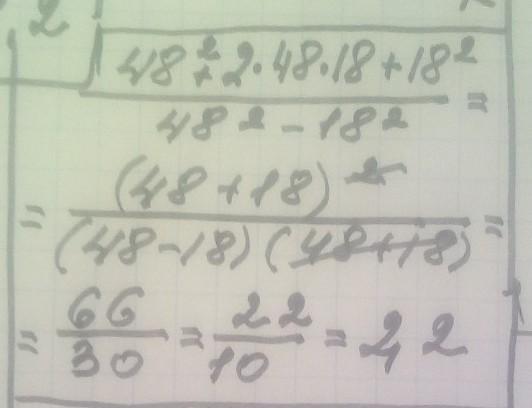 2
48² + 2·48·18 + 18²
48² - 18² =
= (48 + 18)²
(48 - 18) (48 + 18) =
= 66/30 = 22/10 = 2,2